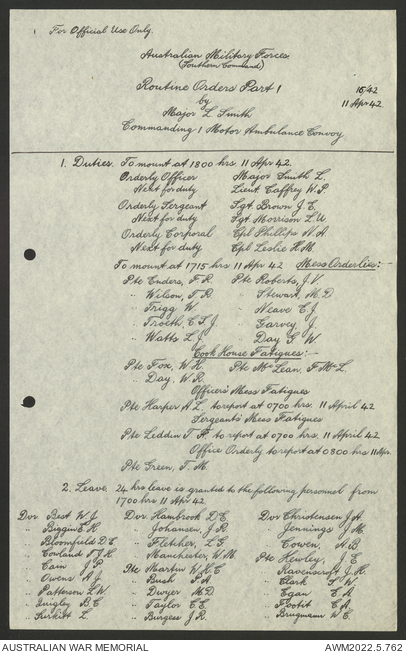 For Official Use Only.
Australian Military Forces
(Southern Command)
Routine Orders Part 1 15/42
by 11 Apr 42
Major L Smith
Commanding 1 Motor Ambulance Convoy
1. Duties. To mount at 1800 hrs 11 Apr 42.
Orderly Officer Major Smith L.
Next for duty Lieut Caffrey W.P
Orderly Sergeant Sgt. Brown J.E.
Next for duty Sgt. Morrison L.U
Orderly Corporal Cpl Phillips N A
Next for duty Cpl Leslie H.M.
To mount at 1715 hrs 11 Apr 42 Mess Orderlies:
Pte Enders, F.R. Pte Roberts, J.V.
" Wilson, T.R. " Stewart, M.D
" Trigg W. " Neave E.J
" Troeth, C.T.J " Garvey, J.
" Watts L.J " Day G W.
Cook House Fatigues:-
Pte Fox, W.H. Pte McLean, F McL.
" Day, W R.
Officers' Mess Fatigues
Pte Harper A.L. to report at 0700 hrs. 11 April 42
Sergeants Mess Fatigues
Pte Leddin T.F. to report at 0700 hrs. 11 April 42
Office Orderly to report at 0800 hrs 11 Apr.
Pte Green, T. M.
2. Leave. 24 hrs leave is granted to the following personnel from
1700 hrs 11 Apr 42.
Dvr Best W J Dvr Hambrook D.E. Dvr Christensen J.A.
" Biggin E H " Johansen, J.R. " Jennings J M.
" Bloomfield D.E " Fletcher, L.G. " Cowen, A.B
" Couland T J H " Manchester, W.M. Pte Hewley, J E
" Cain J P Pte Martin W.H.C " Ravenscroft J.H.
" Owens A J " Bush P.A. " Clark S W.
" Patterson L W " Dwyer M.D " Egan E A.
" Quigley B.C " Taylor C.E. " Footit C A.
" Sirkitt L " Burgess J R. " Brugmann W E.
AUSTRALIAN WAR MEMORIAL AWM2022.5.762